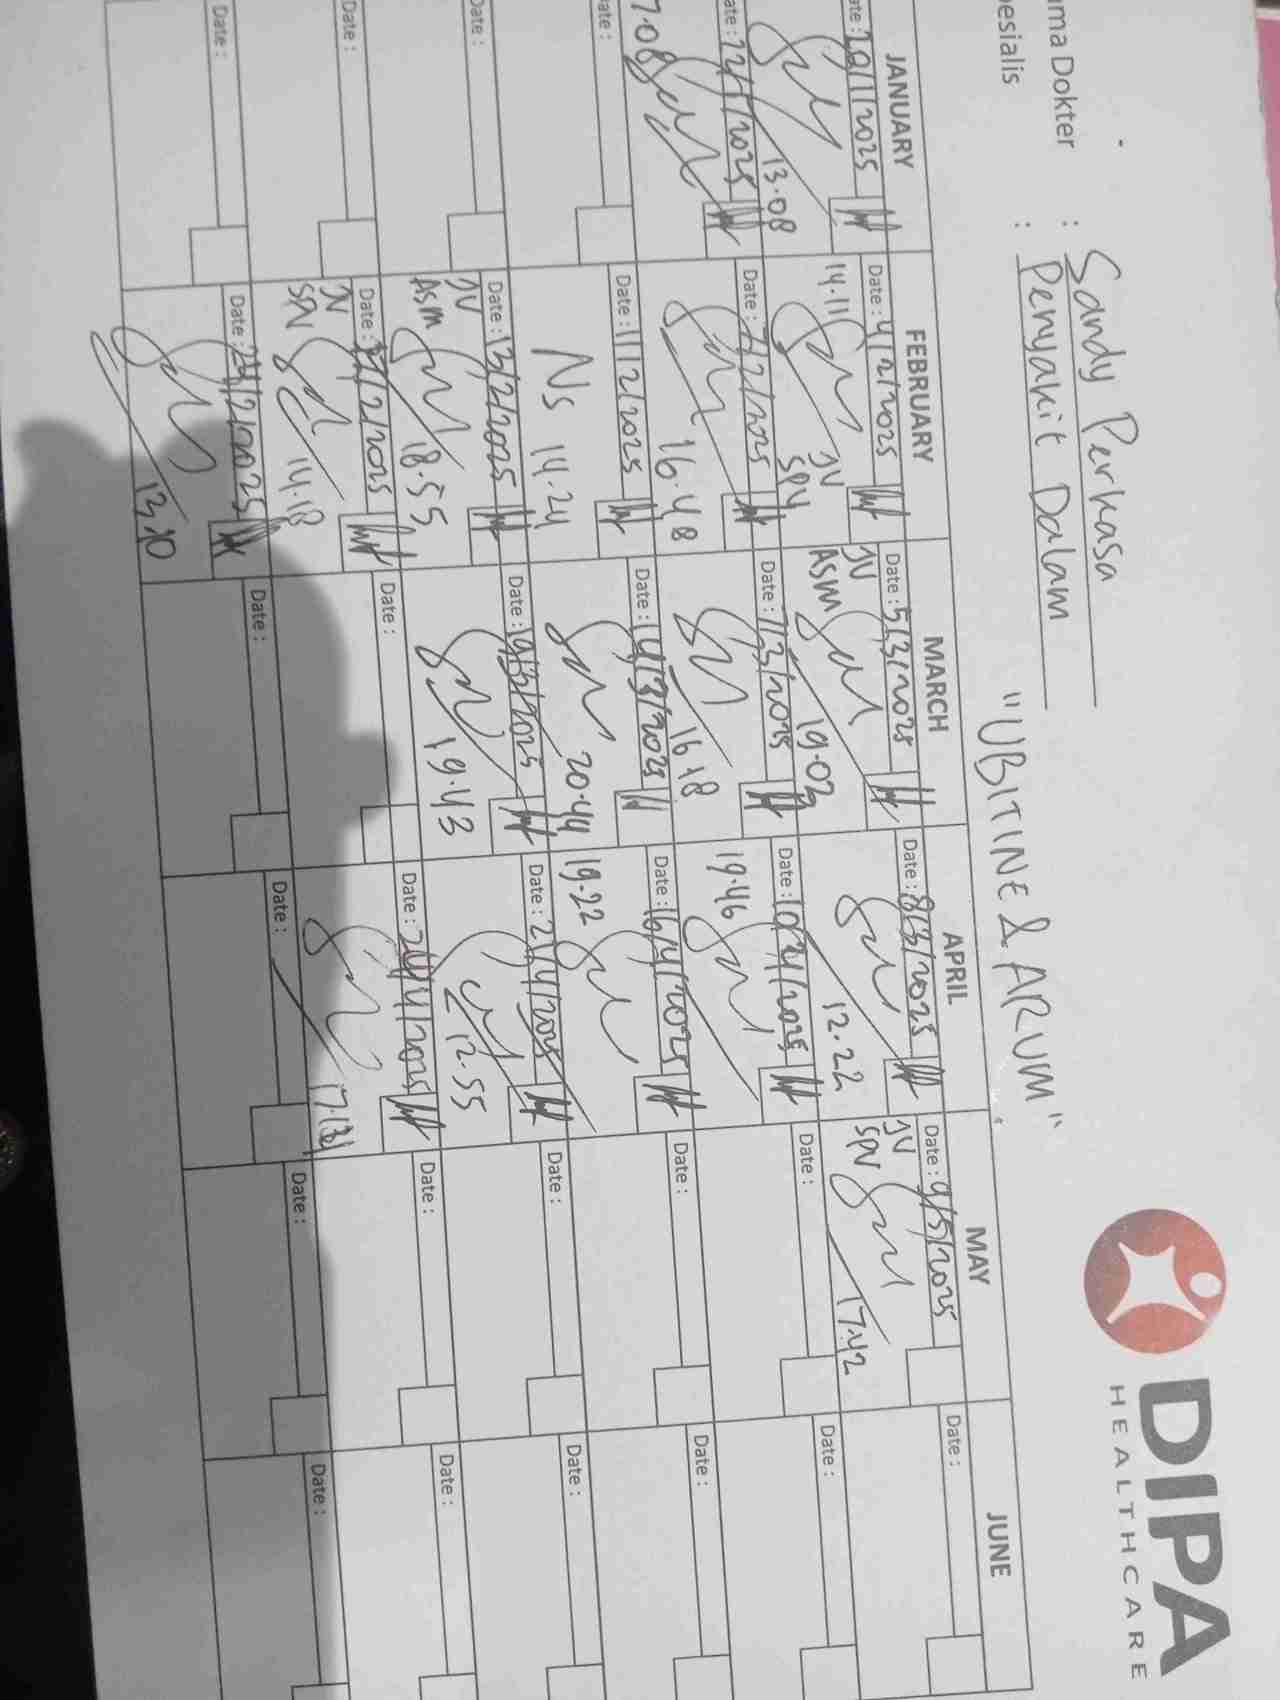 DIPA
HEALTHCARE
ma Dokter : Sandy Perkasa
esialis : Penyakit Dalam
"UBITINE & ARUM"
JANUARY FEBRUARY MARCH APRIL MAY JUNE
ate : 20/1/2025
13.08
Date : 4/2/2025
14.11
JV
SPV
Date : 5/3/2025
JV
ASM
19.02
Date : 8/3/2025
12.22
Date : 9/5/2025
JV
SPV
17.42
Date :
ate : 22/1/2025
7.08
Date : 7/2/2025
16.48
Date : 7/3/2025
16.18
Date : 10/4/2025
19.46
Date :
Date :
ate :
Date : 11/2/2025
NS 14.24
Date : 14/3/2025
20.44
Date : 16/4/2025
19.22
Date :
Date :
Date :
Date : 13/2/2025
JV
ASM
18.55
Date : 19/3/2025
19.43
Date : 21/4/2025
12.55
Date :
Date :
Date :
Date : /2/2025
JV
SPV
14.18
Date :
Date : 24/4/2025
Date :
Date :
Date :
Date :
13.10
Date :
Date :
Date :
Date :